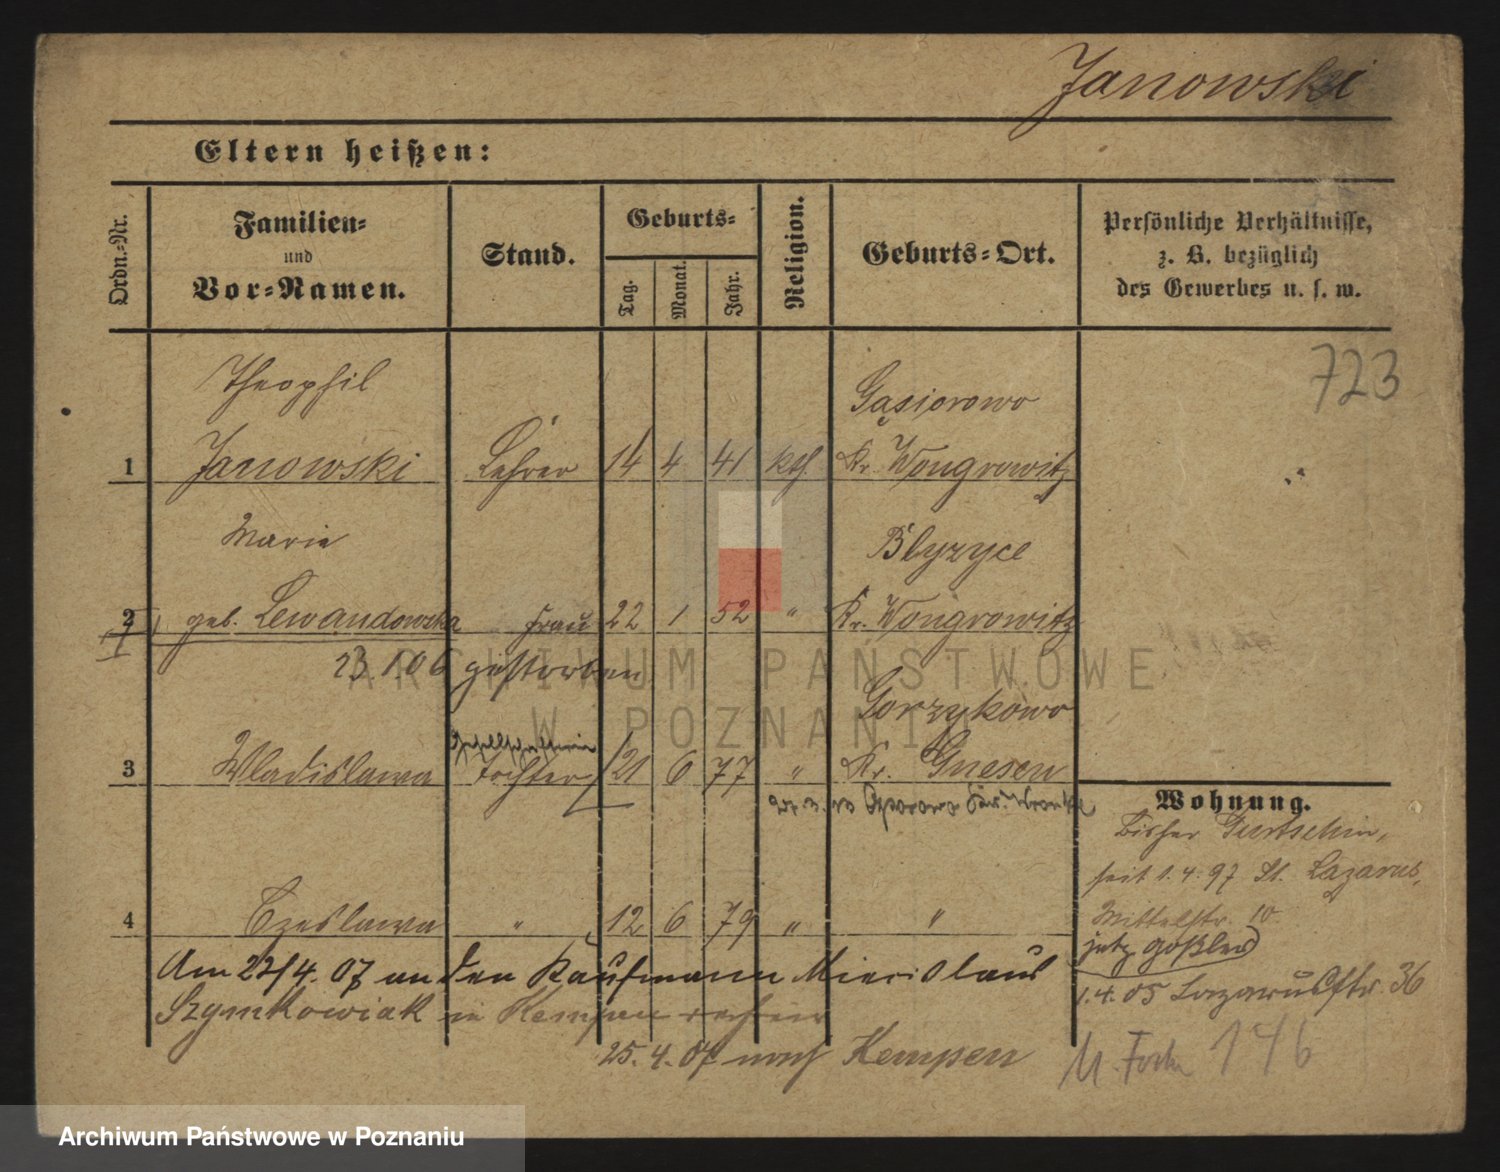 Janowski
Eltern heißen:
Ordn.-Nr.
Familien-
und
Vor-Namen.
Stand.
Geburts-
Tag.
Monat.
Jahr.
Religion.
Geburts-Ort.
Persönliche Verhältnisse,
z. B. bezüglich
des Gewerbes u. s. w.
723
Theophil Gąsiorowo
1 Janowski Lehrer 14 4 41 kth. Kr. Wongrowitz
Marie Blyzyce
2 geb. Lewandowska Frau 22 1 52 " Kr. Wongrowitz
23.1.06 gestorben
Gorzykowo
Gesellschafterin
3 Wladislawa Tochter 21 6 77 " Kr. Gnesen
Wohnung.
Bisher Gurtschin,
seit 1.4.97 St. Lazarus,
Mittelstr. 10
4 Czeslawa " 12 6 79 " "
jetz Goßler
Am 23/4. 07 an den Kaufmann Miecislaus
1.4.05 Lazarusstr. 36
Szymkowiak in Kempen
25.4.07 nach Kempen
146
ARCHIWUM PAŃSTWOWE
W POZNANIU
Archiwum Państwowe w Poznaniu